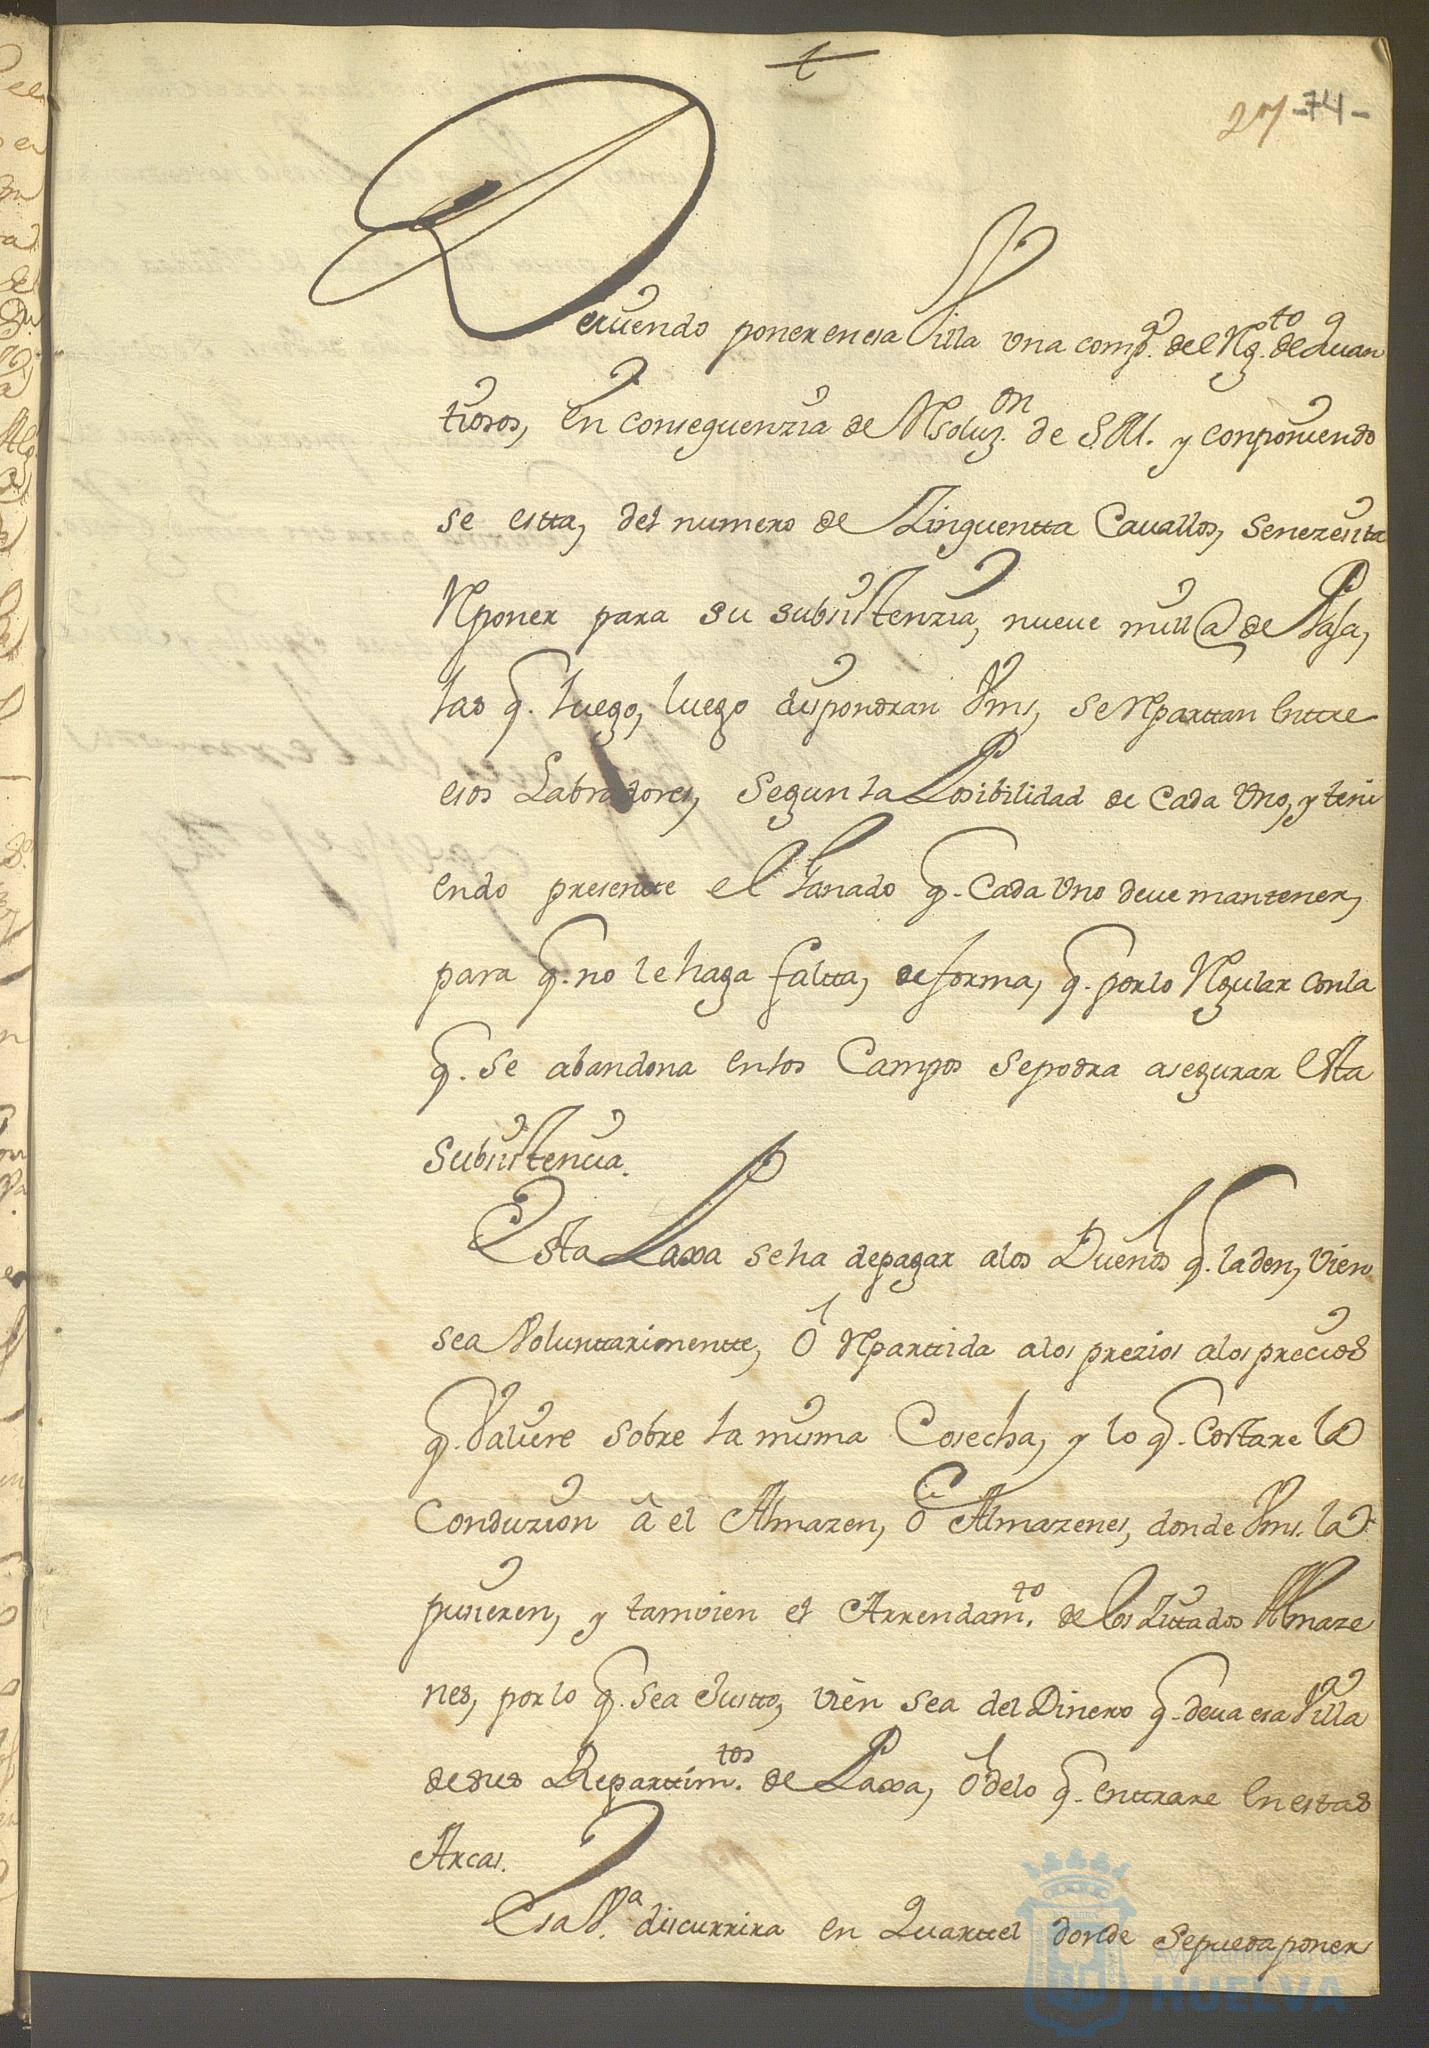 t
27 -74-
Deviendo poner en esa Villa una comp.ª del Rg.to de quan
tiosos, en conseguenzia de Rsoluz.on de S.M. y conponiendo
se estta, del numero de Zinquentta Cavallos, se nezesita
Rponer para su subsistenzia, nueve mill @ de Paja,
las q. luego, luego dispondran Vms, se Rparttan entre
esos Labradores, segun la Posibilidad de cada Uno, y teni
endo presentte el Ganado q. cada Uno deve mantener,
para q. no le haga faltta, de forma, q. por lo Rgular con la
q. se abandona en los Campos se podra asegurar esta
subsistencia.
Esta Paxa se ha de pagar a los Dueños q. la den, vien
sea Voluntariamentte, ó Rparttida a los prezios a los precios
q. Valiere sobre la misma Cosecha, y lo q. costare la
Conduzion â el Almazen, ô Almazenes, donde Vms. la
pusieren, y tamvien el Arrendam.to de los Zittados Almaze
nes, por lo q. sea Justto, vien sea del Dinero q. deva esa Villa
de sus Reparttim.tos de Paxa, ó de lo q. enttrare en estas
Arcas.
Esa V.ª discurrira en Quarttel donde se pueda poner
Ayuntamiento de
HUELVA